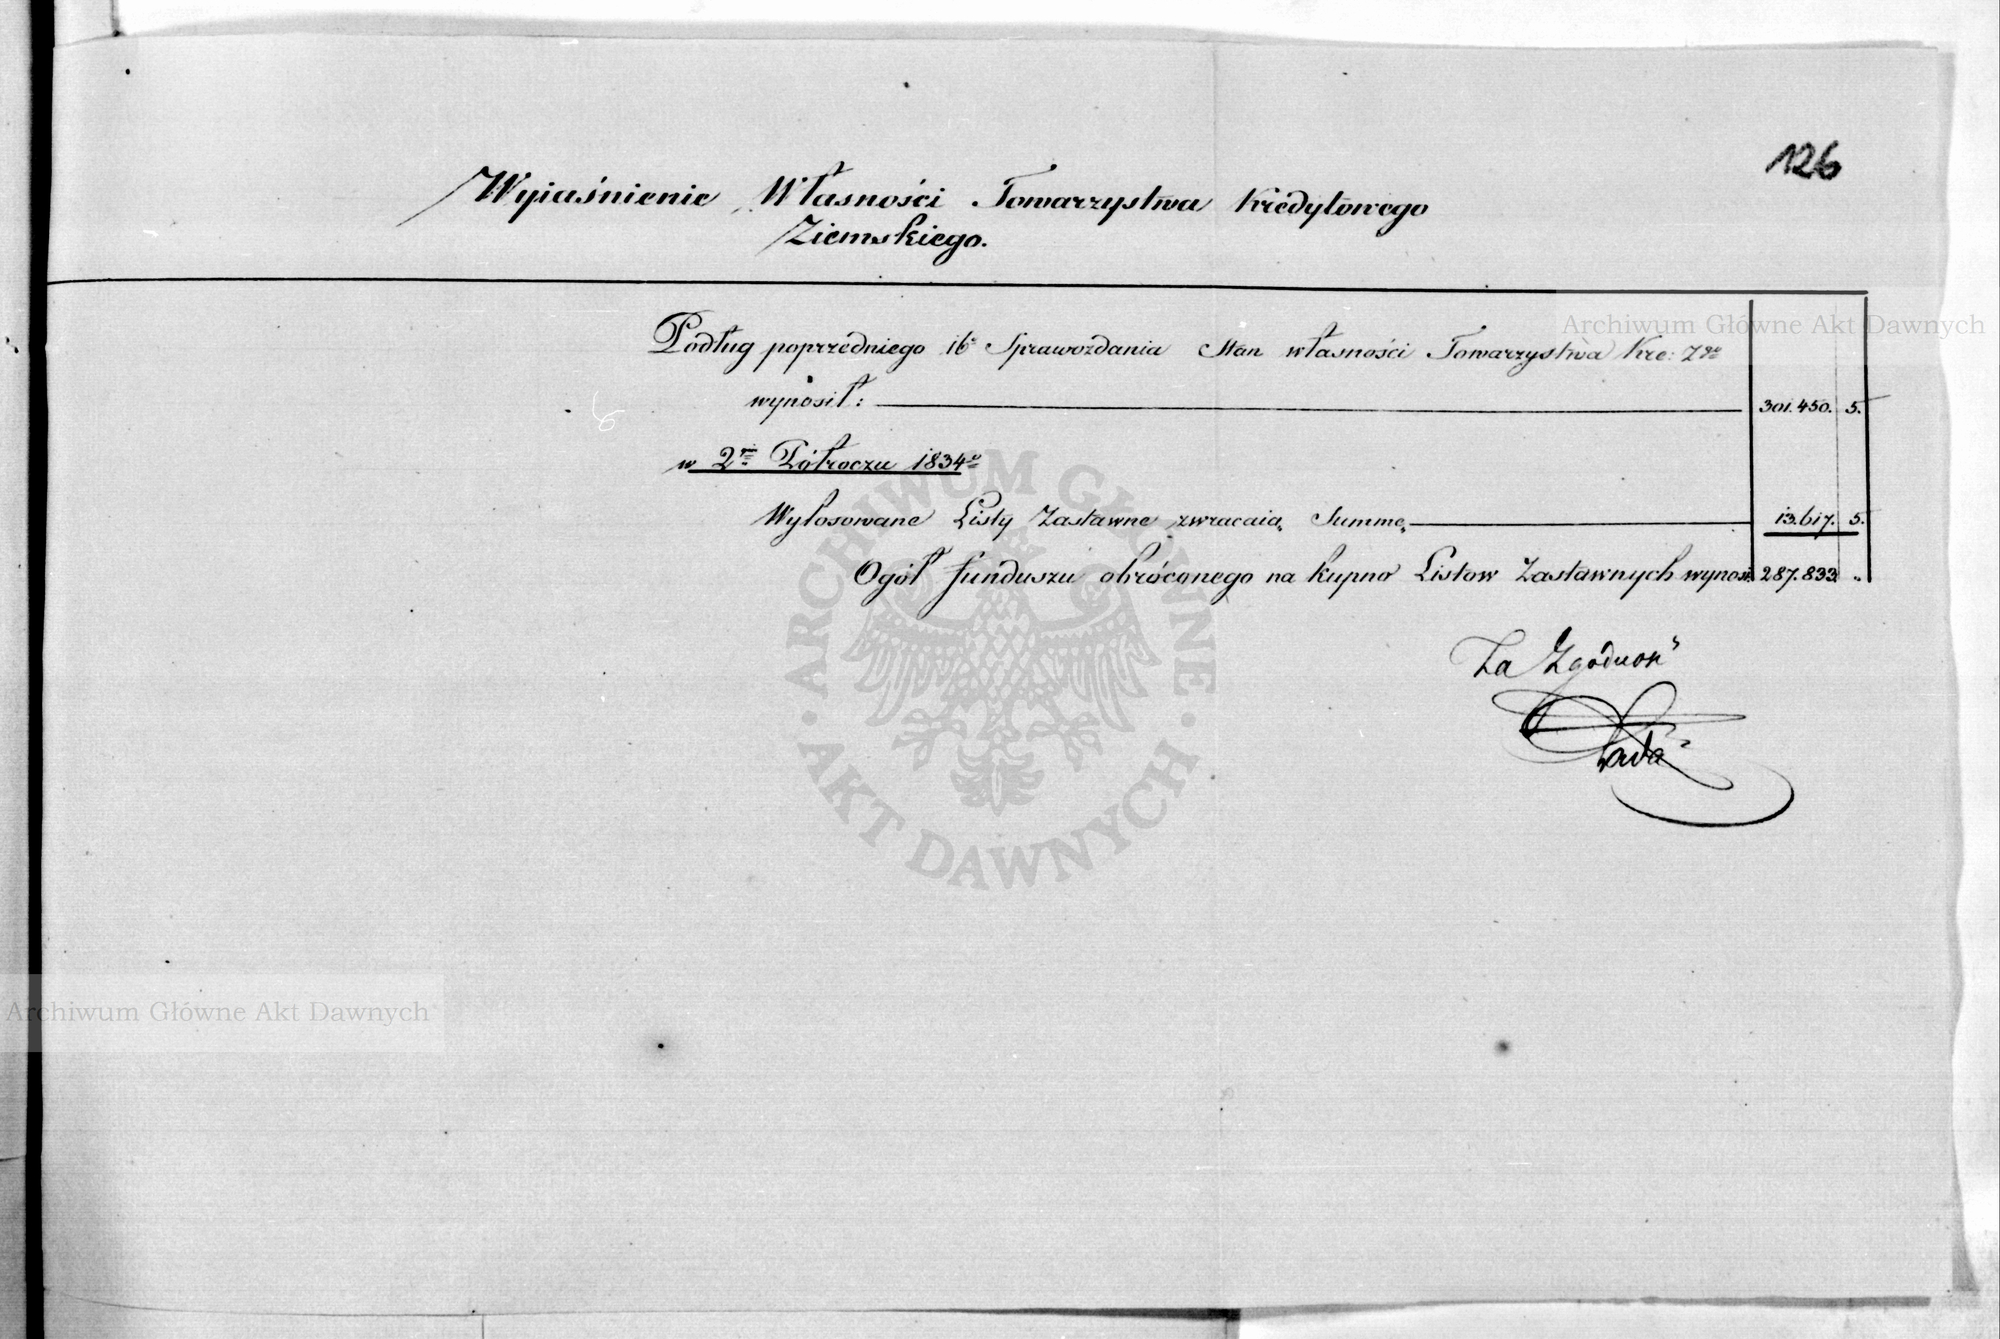 126
Wyiaśnienie Własności Towarzystwa Kredytowego
Ziemskiego.
Archiwum Główne Akt Dawnych
Podług poprzedniego 16º Sprawozdania Stan własności Towarzystwa Kre: Zgo
wynosił: 301.450. 5.
w 2m Półroczu 1834º
Wylosowane Listy Zastawne zwracaią Summę 13.617. 5.
Ogół funduszu obróconego na kupno Listow Zastawnych wynosi 287.833 "
Za Zgodność
ARCHIWUM GŁÓWNE · AKT DAWNYCH ·
Archiwum Główne Akt Dawnych